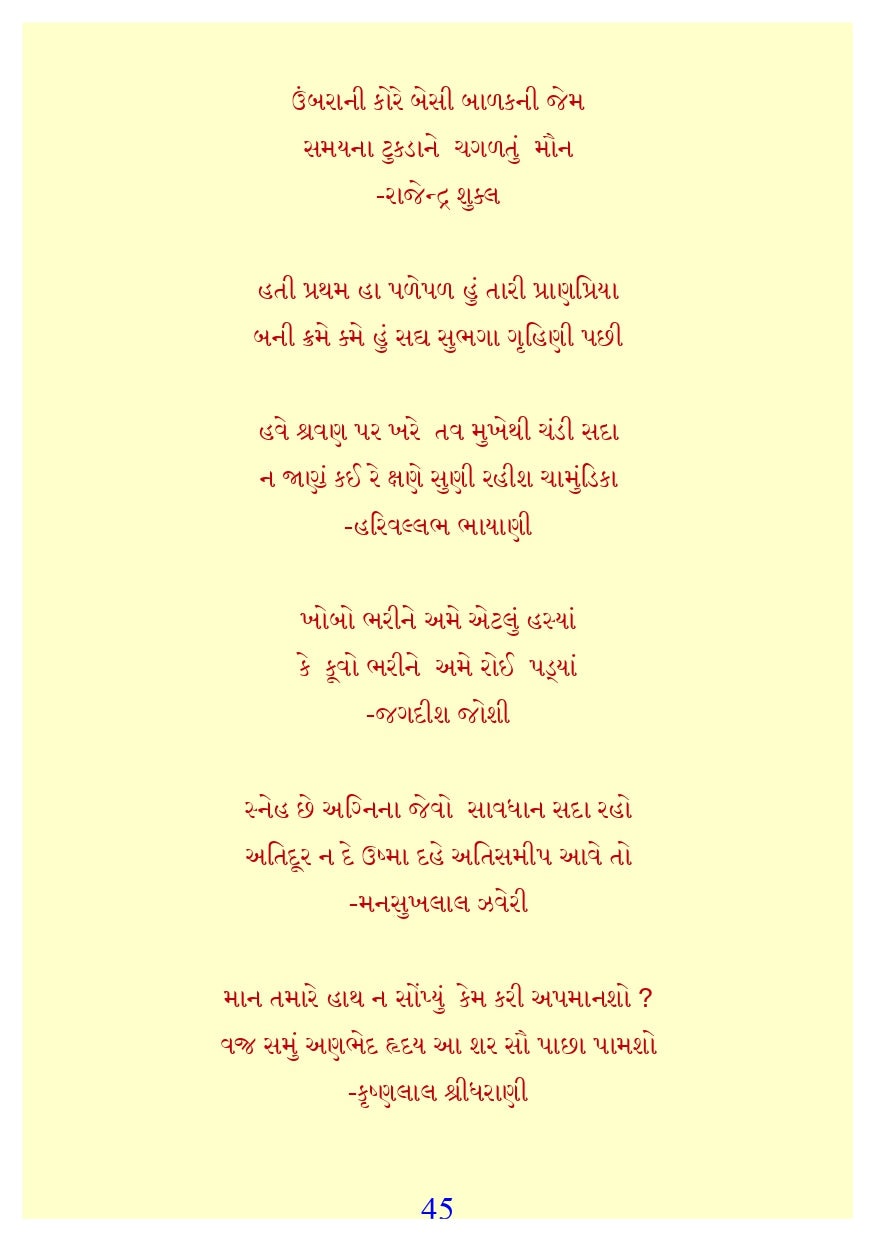 ઉંબરાની કોરે બેસી બાળકની જેમ
સમયના ટુકડાને ચગળતું મૌન
-રાજેન્દ્ર શુક્લ
હતી પ્રથમ હા પળેપળ હું તારી પ્રાણપ્રિયા
બની ક્રમે ક્મે હું સદ્ય સુભગા ગૃહિણી પછી
હવે શ્રવણ પર ખરે તવ મુખેથી ચંડી સદા
ન જાણું કઈ રે ક્ષણે સુણી રહીશ ચામુંડિકા
-હરિવલ્લભ ભાયાણી
ખોબો ભરીને અમે એટલું હસ્યાં
કે કૂવો ભરીને અમે રોઈ પડ્યાં
-જગદીશ જોશી
સ્નેહ છે અગ્નિના જેવો સાવધાન સદા રહો
અતિદૂર ન દે ઉષ્મા દહે અતિસમીપ આવે તો
-મનસુખલાલ ઝવેરી
માન તમારે હાથ ન સોંપ્યું કેમ કરી અપમાનશો ?
વજ્ર સમું અણભેદ હૃદય આ શર સૌ પાછા પામશો
-કૃષ્ણલાલ શ્રીધરાણી
45